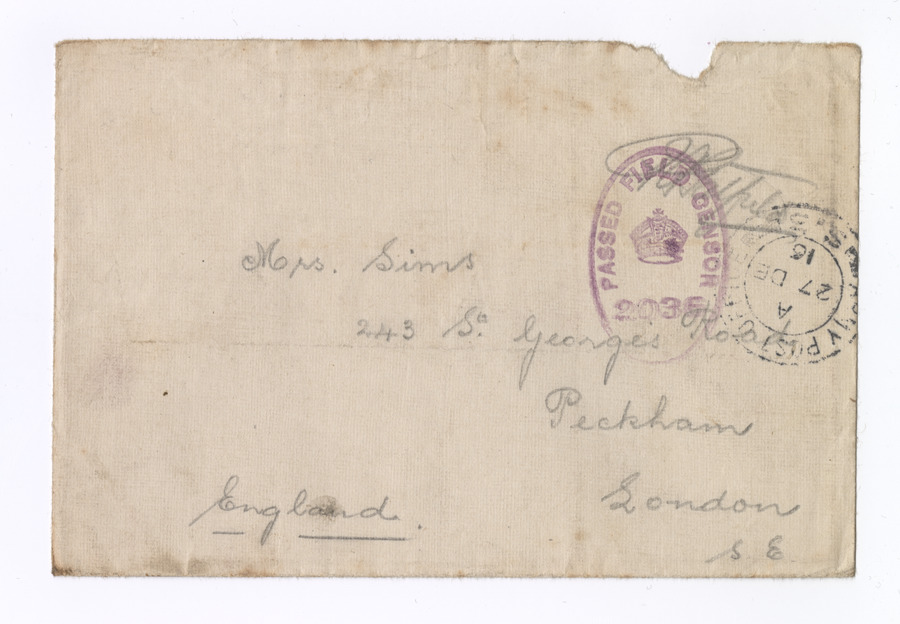 PASSED FIELD CENSOR
2036
27 DE
A
Mrs. Sims
243 St. Georges Road
Peckham
London
S E
England.